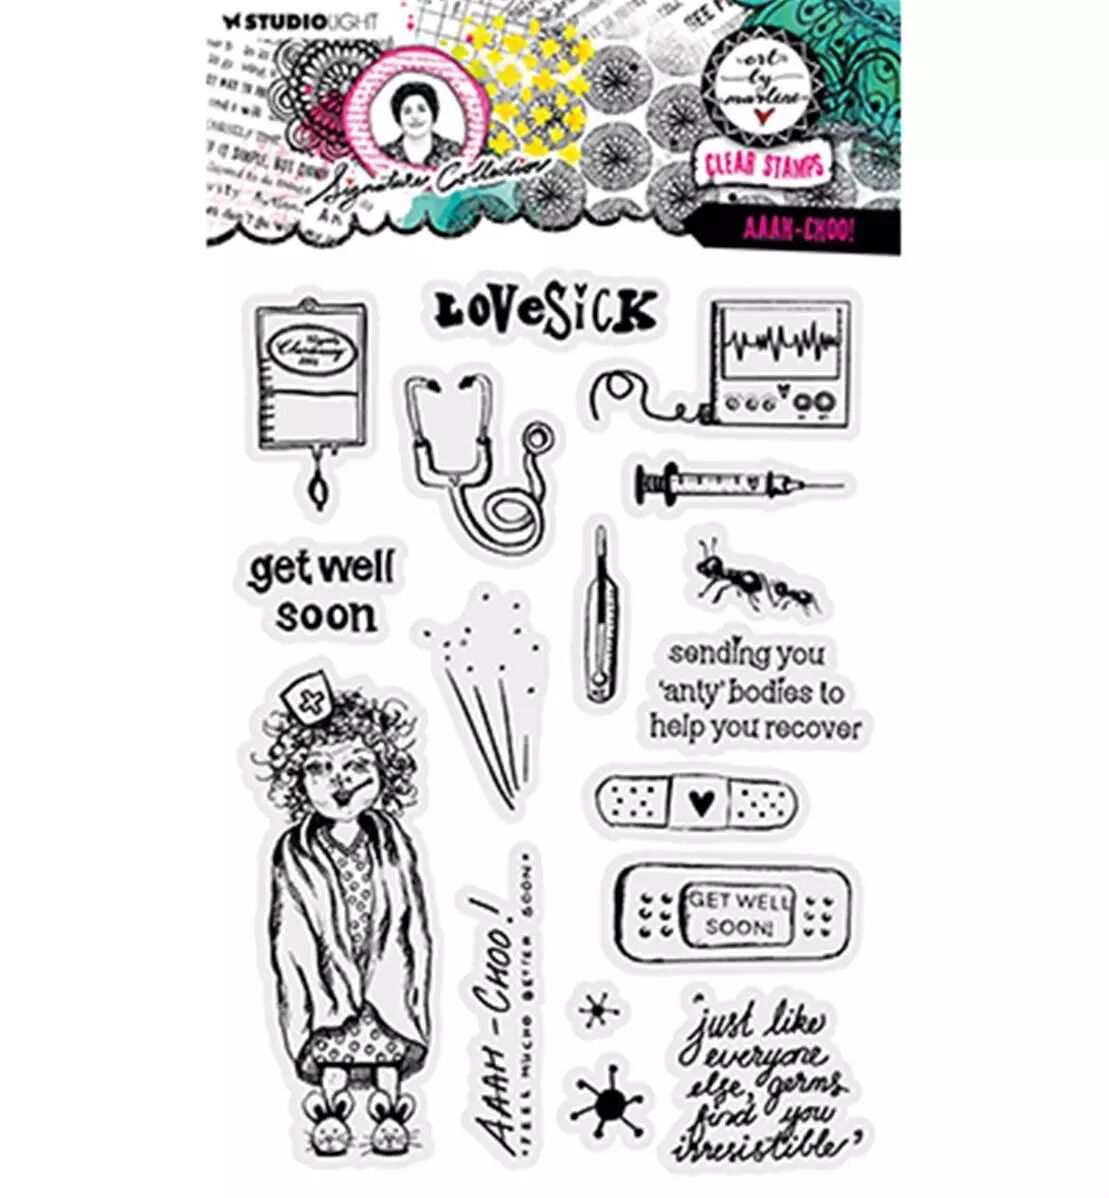 STUDIOLIGHT
SEE
art
by
marlene
Signature Collection
CLEAR STAMPS
AAAH-CHOO!
LOVESiCK
Chardonnay
get well
soon
sending you
'anty' bodies to
help you recover
GET WELL
SOON!
AAAH-CHOO!
"FEEL MUCHO BETTER SOON"
"just like
everyone
else, germs
find you
irresistible"